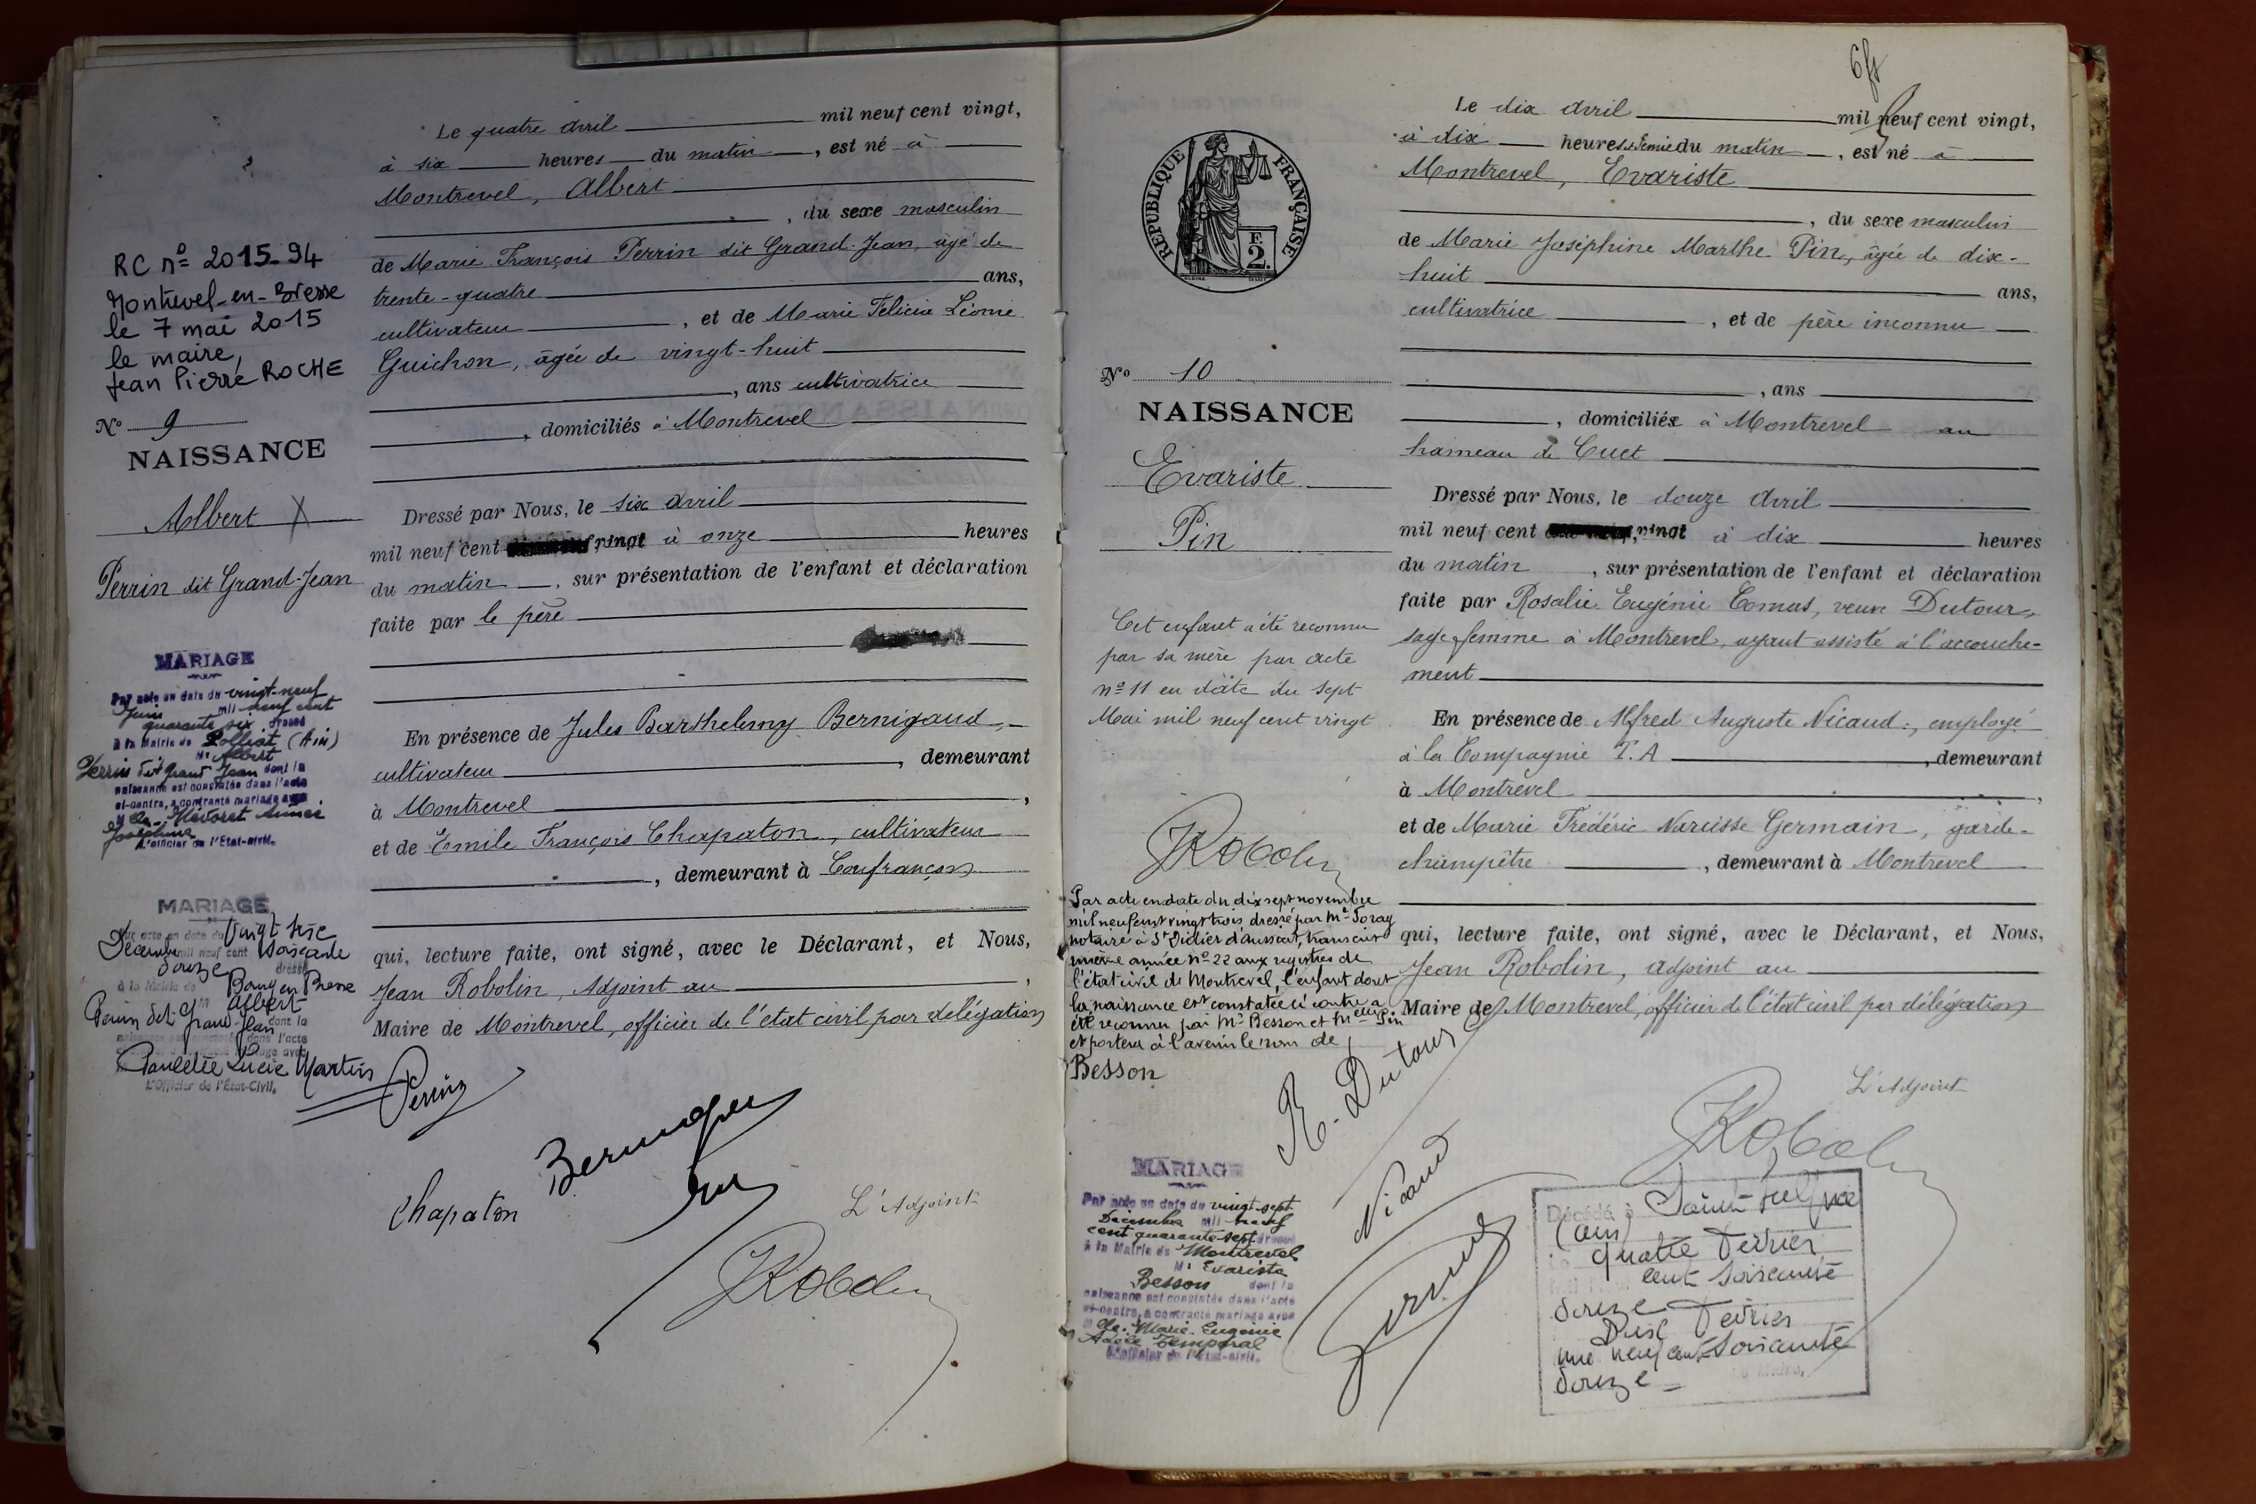 Le quatre avril mil neuf cent vingt,
à six heures du matin, est né à
Montrevel, Albert
, du sexe masculin
de Marie François Perrin dit Grand-Jean, âgé de
trente-quatre ans,
cultivateur, et de Marie Félicie Léonie
Guichon, âgée de vingt-huit
, ans cultivatrice
, domiciliés à Montrevel
RC nº 2015-94
Montrevel-en-Bresse
le 7 mai 2015
le maire,
Jean Pierre ROCHE
Nº 9
NAISSANCE
Albert X
Perrin dit Grand-Jean
Dressé par Nous, le six avril
mil neuf cent vingt à onze heures
du matin, sur présentation de l'enfant et déclaration
faite par le père
MARIAGE
Par acte en date du vingt-neuf
Juin mil neuf cent
quarante six dressé
à la Mairie de Polliat (Ain)
Mr Albert
Perrin dit Grand Jean dont la
naissance est constatée dans l'acte
ci-contre, a contracté mariage avec
Joséphine
L'officier de l'Etat-civil.
En présence de Jules Barthelemy Bernigaud,
cultivateur, demeurant
à Montrevel,
et de Emile François Chapaton, cultivateur
, demeurant à Confrançon
MARIAGE
Par acte en date du vingt six
Décembre mil neuf cent soixante
douze dressé
à la Mairie de Bourg en Bresse
Mr Albert
Perrin dit Grand Jean dont la
Paulette Lucie Martin
L'Officier de l'Etat-Civil.
qui, lecture faite, ont signé, avec le Déclarant, et Nous,
Jean Robolin, Adjoint au,
Maire de Montrevel, officier de l'état civil par délégation
Perrin
Chapaton
L'Adjoint
JRobolin
6
Le dix avril mil neuf cent vingt,
à dix heures et demie du matin, est né à
Montrevel, Evariste
, du sexe masculin
de Marie Joséphine Marthe Pin, âgée de dix-
huit ans,
cultivatrice, et de père inconnu
, ans
, domiciliée à Montrevel au
hameau de Cuet
REPUBLIQUE FRANÇAISE
E
2.
Nº 10
NAISSANCE
Evariste
Pin
Dressé par Nous, le douze avril
mil neuf cent vingt à dix heures
du matin, sur présentation de l'enfant et déclaration
faite par Rosalie Eugénie Comas, veuve Dutour,
sage-femme à Montrevel, ayant assisté à l'accouche-
ment
Cet enfant a été reconnu
par sa mère par acte
nº 11 en date du sept
Mai mil neuf cent vingt
JRobolin
En présence de Alfred Auguste Nicaud, employé
à la Compagnie T.A, demeurant
à Montrevel,
et de Marie Frédéric Narcisse Germain, garde-
champêtre, demeurant à Montrevel
Par acte en date du dix sept novembre
mil neuf cent vingt trois dressé par Me
notaire à St Didier d'Aussiat, transcrit
même année nº 22 aux registres de
l'état civil de Montrevel, l'enfant dont
la naissance est constatée ci contre a
été reconnu par Mr Besson et Melle Pin
et portera à l'avenir le nom de
Besson
qui, lecture faite, ont signé, avec le Déclarant, et Nous,
Jean Robolin, adjoint au
Maire de Montrevel, officier de l'état civil par délégation
R. Dutour
Nicaud
L'Adjoint
JRobolin
MARIAGE
Par acte en date du vingt-sept
Décembre mil neuf
cent quarante-sept dressé
à la Mairie de Montrevel
Mr Evariste
Besson dont la
naissance est constatée dans l'acte
ci-contre, a contracté mariage avec
Marie-Eugénie
Adèle Temporal
L'officier de l'Etat-civil.
Décédé à Saint-Julien
(Ain)
quatre Février
cent soixante
douze
Dix Février
mil neuf cent soixante
douze